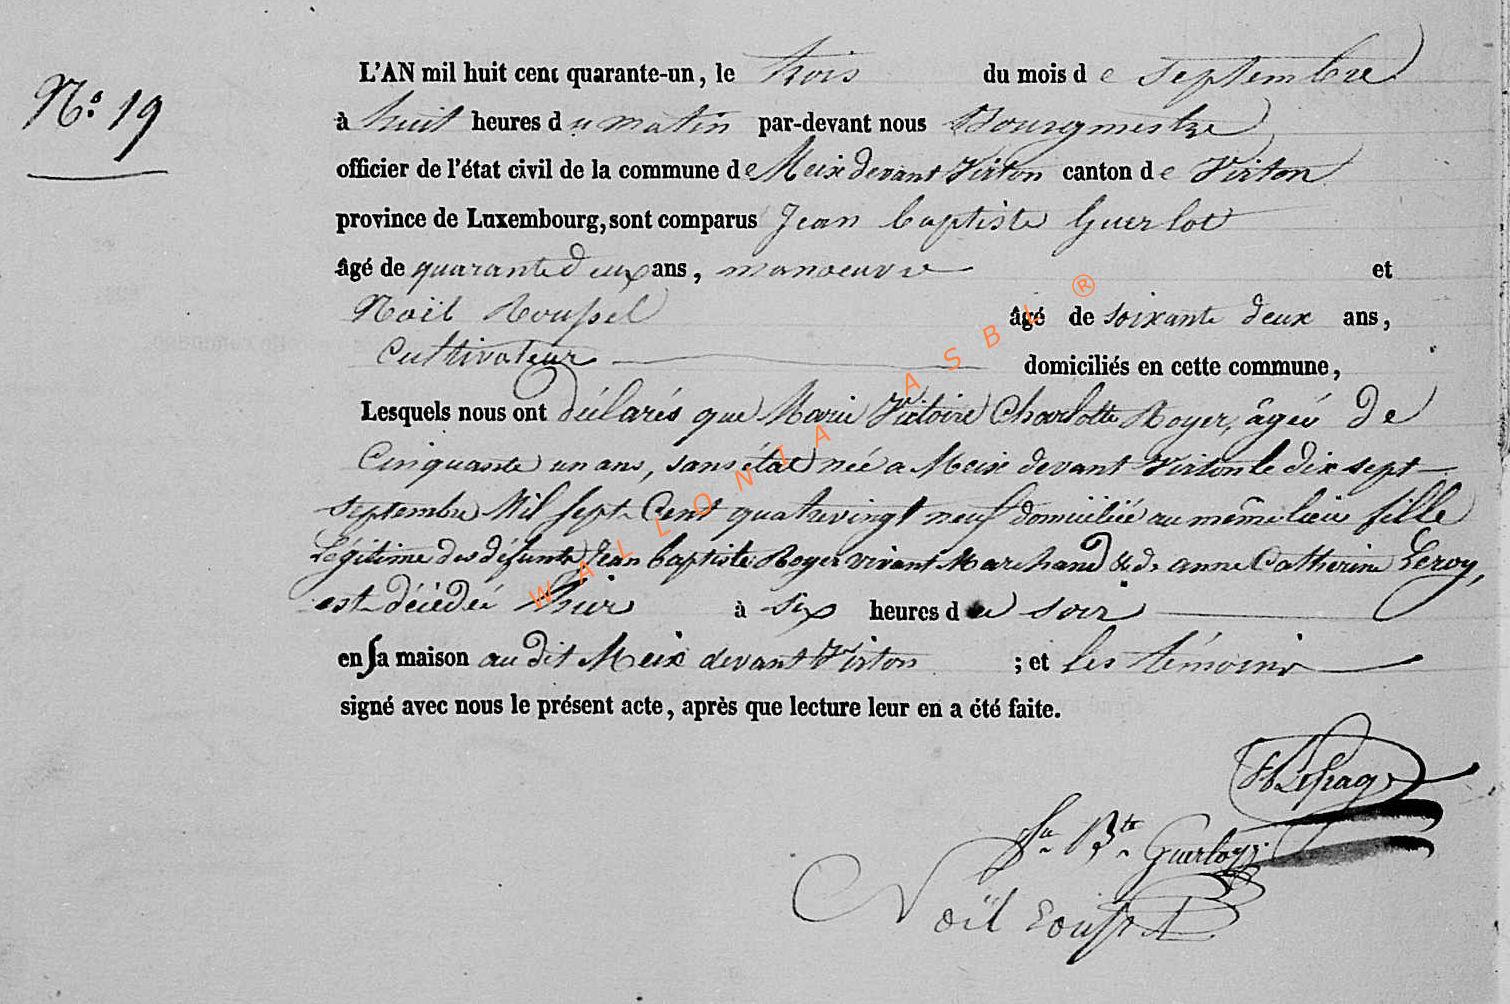 N° 19
L'AN mil huit cent quarante-un, le trois du mois de septembre
à huit heures du matin par-devant nous Bourgmestre
officier de l'état civil de la commune de Meix devant Virton canton de Virton
province de Luxembourg, sont comparus Jean baptiste Guerlot
âgé de quarante deux ans, manoeuvre et
Noël Roussel âgé de soixante deux ans,
Cultivateur domiciliés en cette commune,
Lesquels nous ont déclarés que Marie Victoire Charlotte Royer, âgée de
Cinquante un ans, sans état née a Meix devant Virton le dix sept
septembre Mil sept Cent quatrevingt neuf domiciliée au même lieu fille
Légitime des défunts Jean baptiste Royer vivant Marchand & de anne Catherine Leroy,
est décédée hier à six heures du soir
en sa maison au dit Meix devant Virton ; et les témoins
signé avec nous le présent acte, après que lecture leur en a été faite.
Bte Guerlot
Noël
WALLONIA ASBL ®